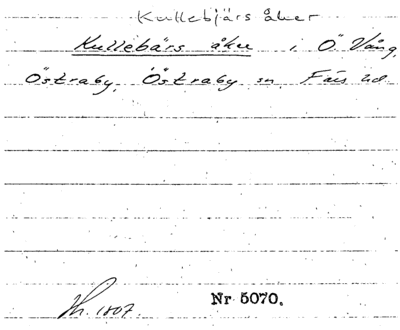 Kullebjärs åker
Kullebärs åker i Ö Vång,
Östraby, Östraby sn Färs hd
Nr 5070.